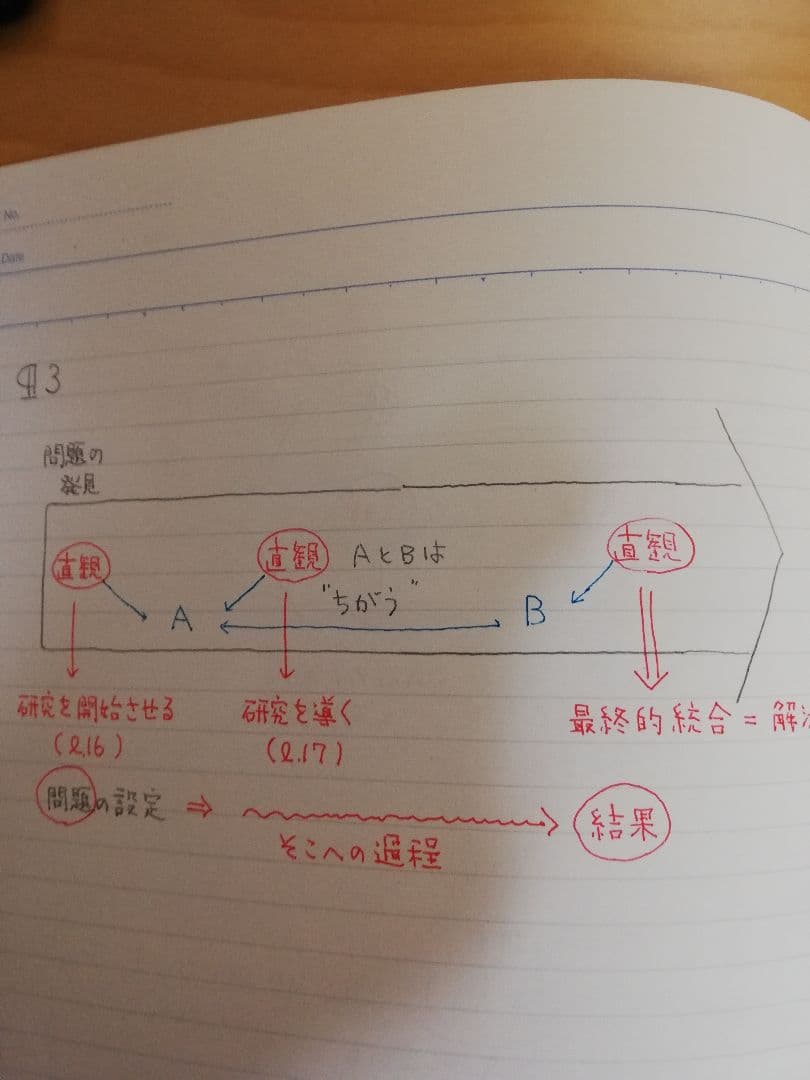 No.
Date
¶3
問題の
発見
直観
直観 AとBは
"ちがう"
直観
A
B
研究を開始させる
(l.16)
研究を導く
(l.17)
最終的統合 = 解
問題の設定 ⇒
そこへの過程
結果